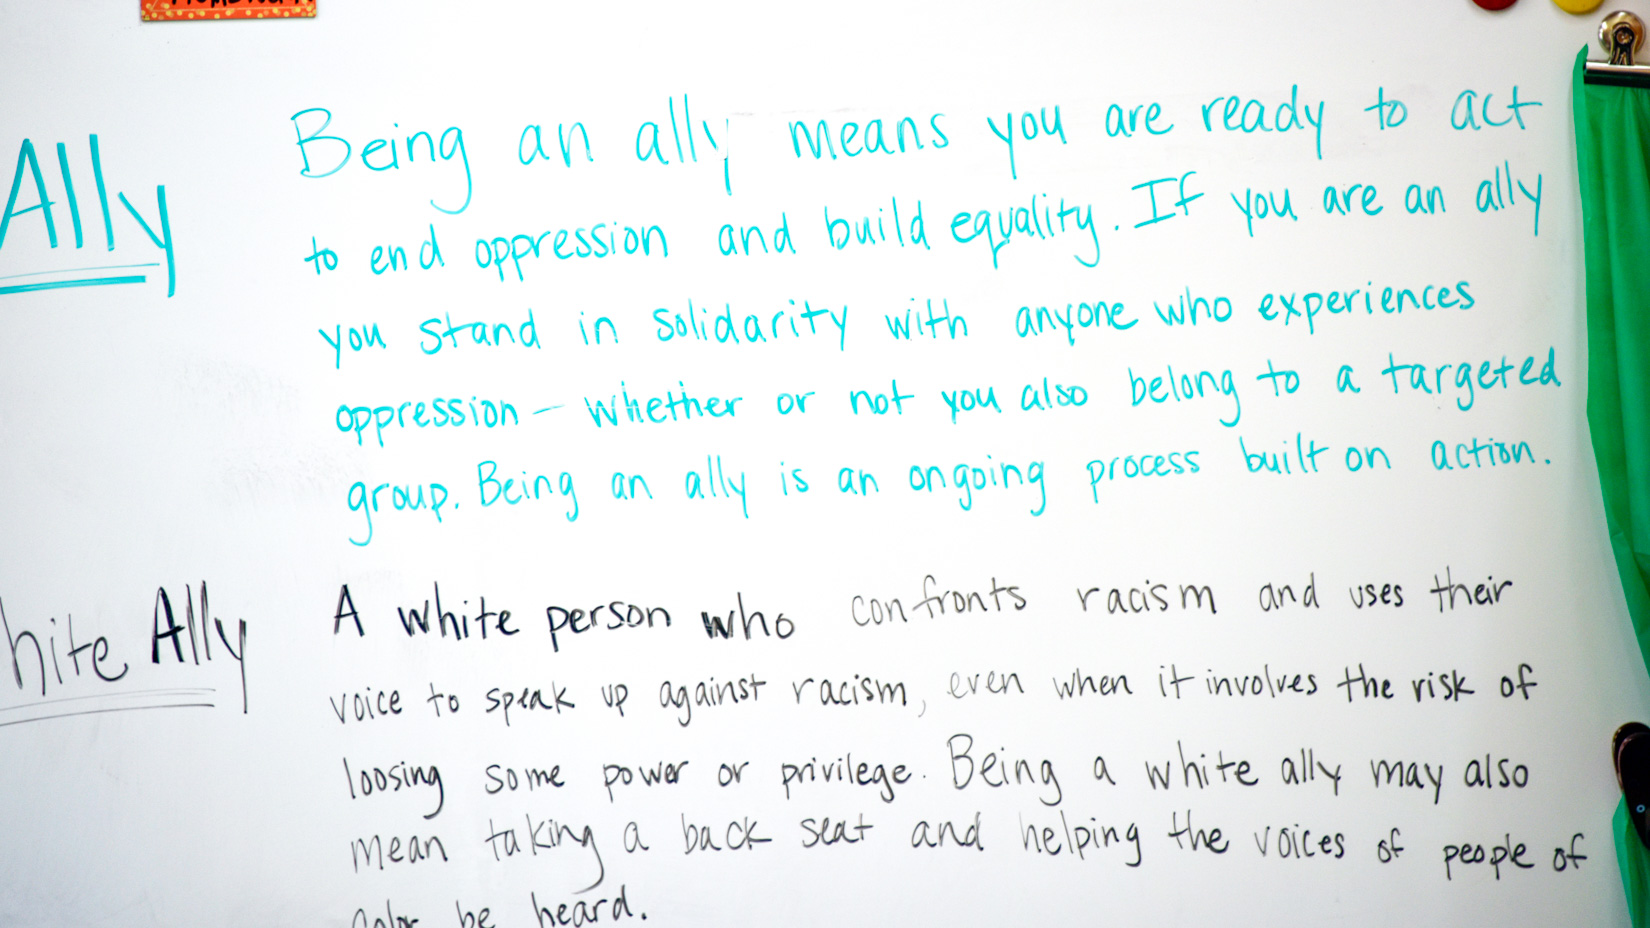 Ally
Being an ally means you are ready to act
to end oppression and build equality. If you are an ally
you stand in solidarity with anyone who experiences
oppression – whether or not you also belong to a targeted
group. Being an ally is an ongoing process built on action.
hite Ally
A white person who confronts racism and uses their
voice to speak up against racism, even when it involves the risk of
loosing some power or privilege. Being a white ally may also
mean taking a back seat and helping the voices of people of
color be heard.